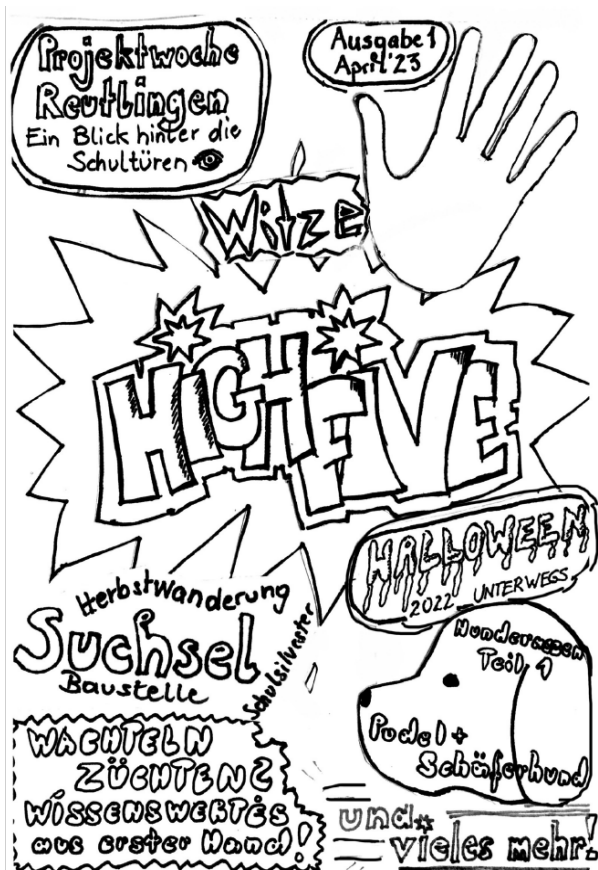 Projektwoche
Reutlingen
Ein Blick hinter die
Schultüren
Ausgabe 1
April '23
Witze
HIGH FIVE
HALLOWEEN
2022 UNTERWEGS
Herbstwanderung
Suchsel
Baustelle
Schulsilvester
Hunderassen
Teil 1
Pudel +
Schäferhund
WACHTELN
ZÜCHTEN?
WISSENSWERTES
aus erster Hand!
und
vieles mehr!